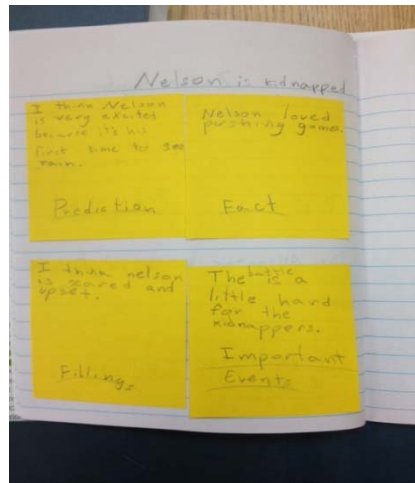 Nelson is kidnapped
I think Nelson
is very excited
because it's his
first time to see
rain.
Prediction
Nelson loved
pushing games.
Fact
I think nelson
is scared and
upset.
Fillings
The battle is a
little hard
for the
kidnappers.
Important
Events